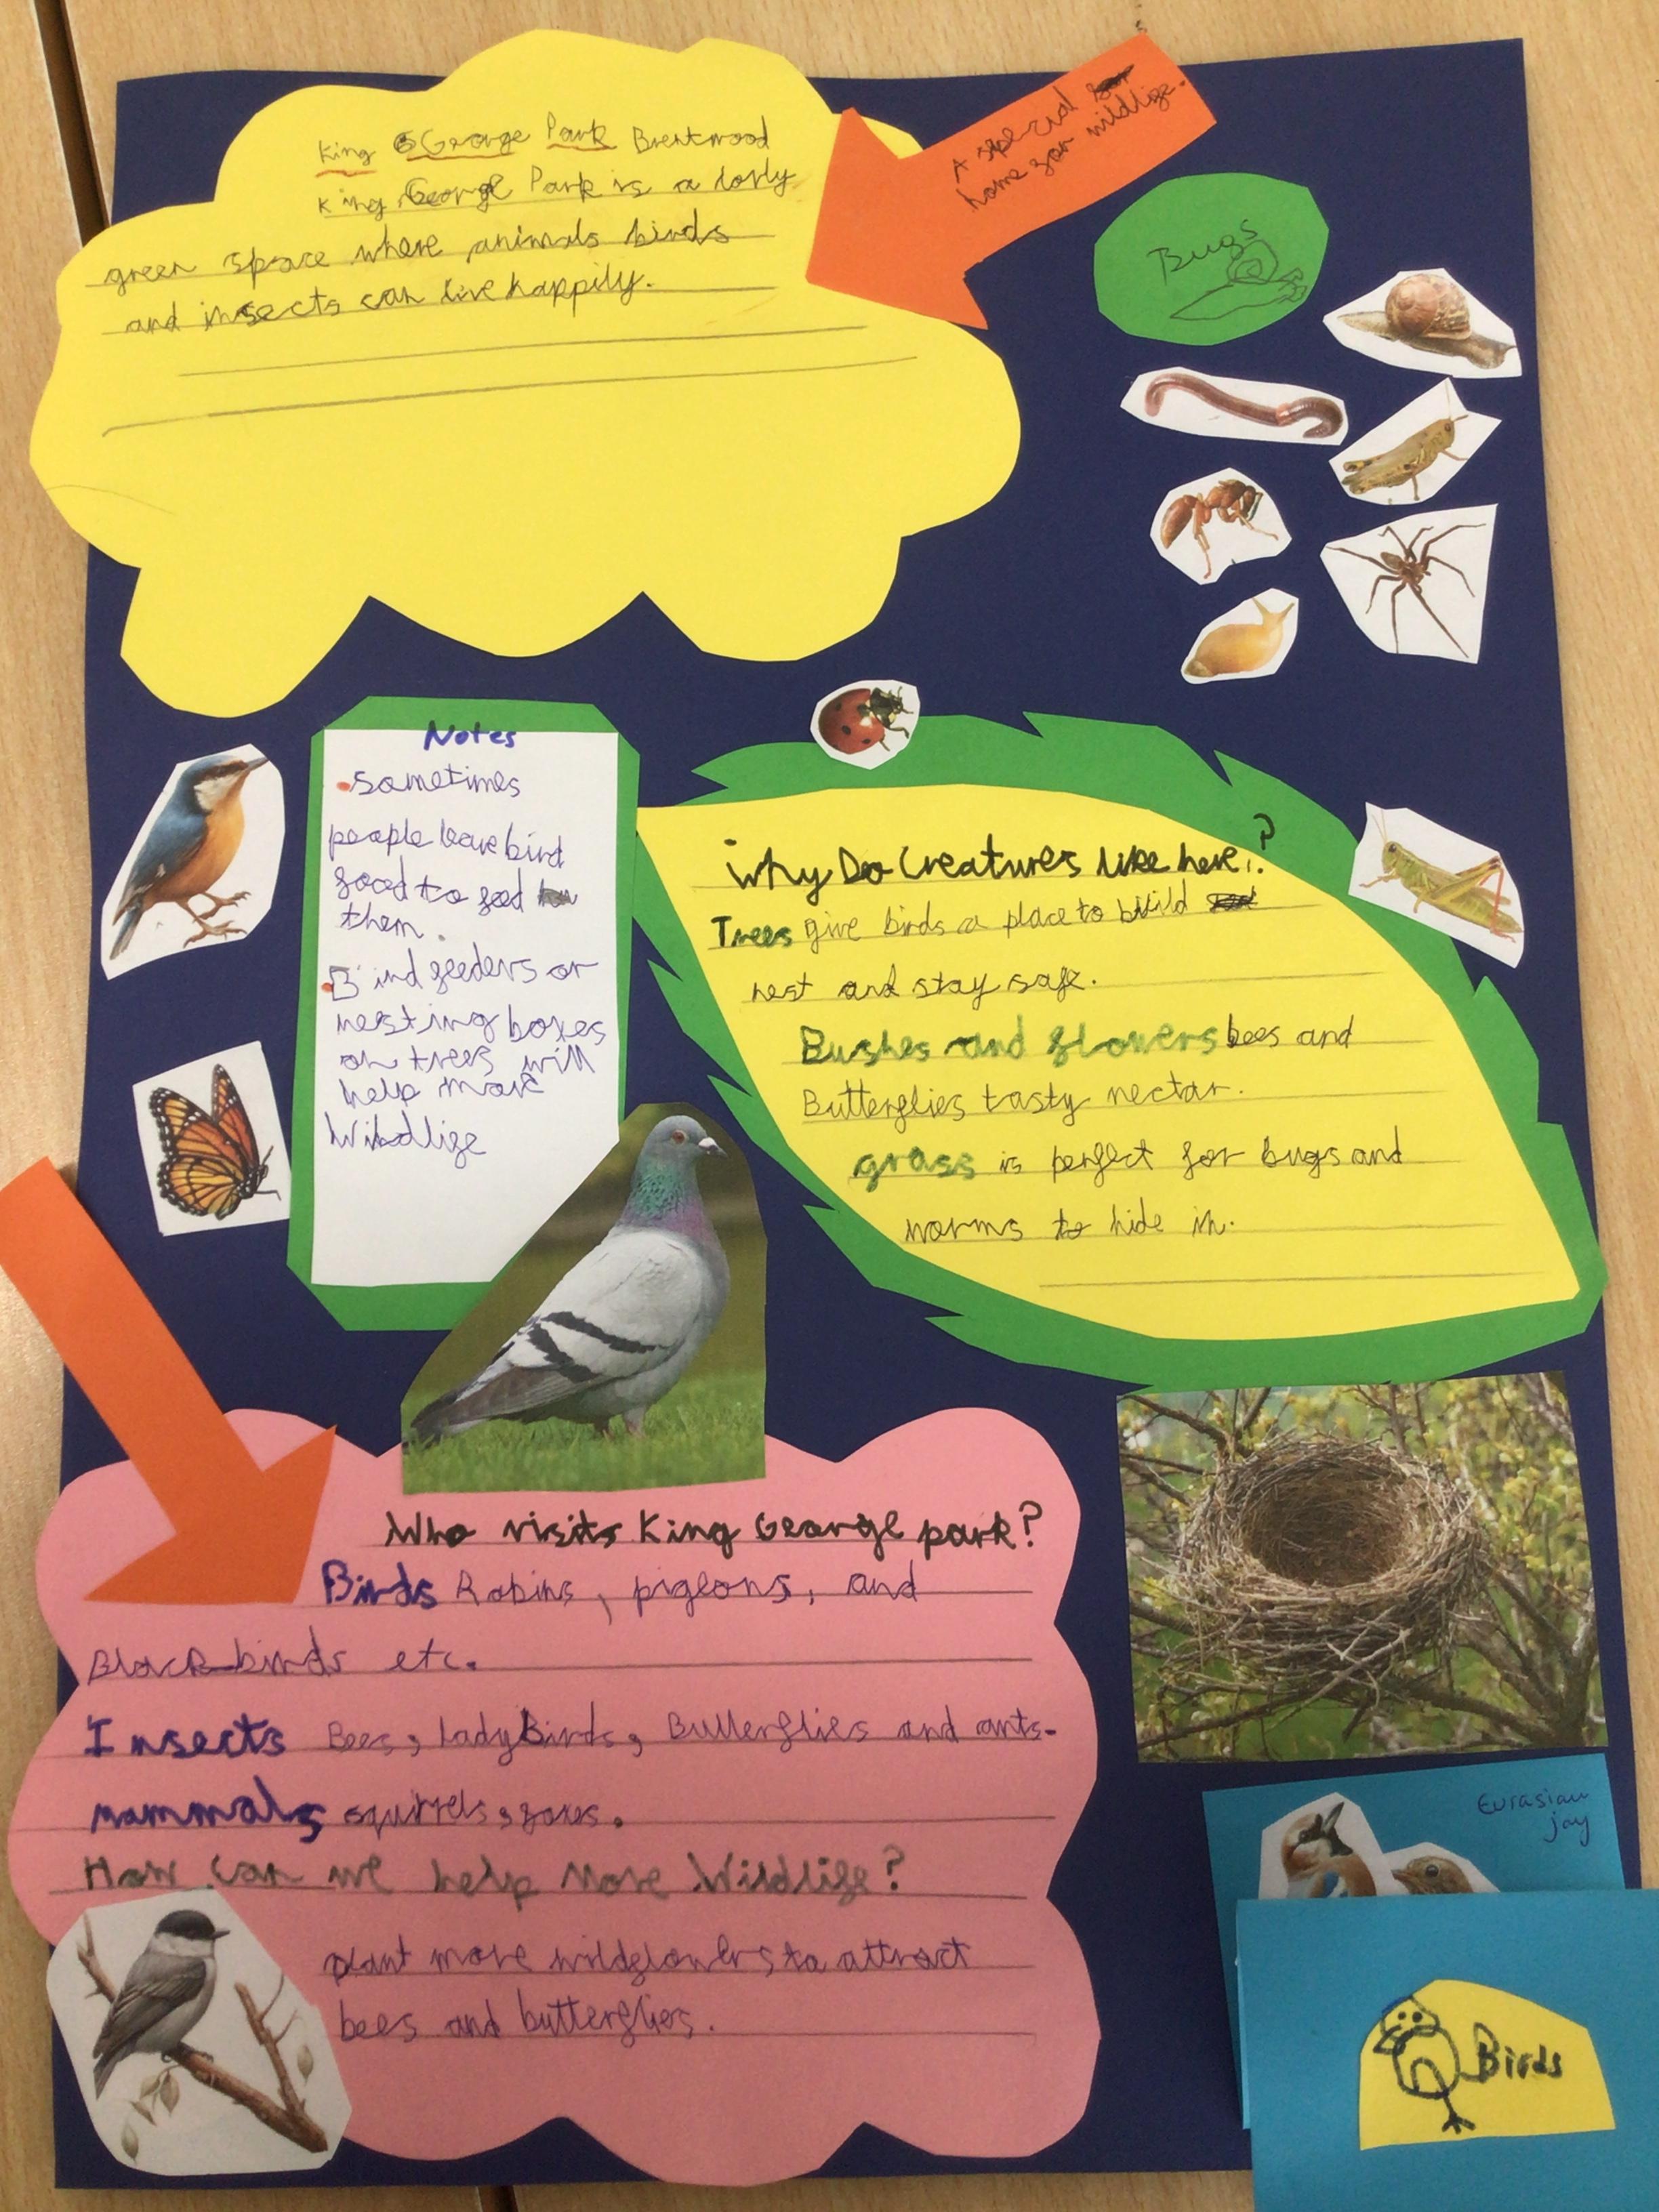 King George Park Brentwood
King George Park is a lovly
green space where animals birds
and insects can live happily.
A special
home for wildlife.
Bugs
Notes
•sometimes
people leave bird
food to feed
them.
•Bird feeders or
nesting boxes
on trees will
help more
Wildlife
Why Do Creatures like here?
Trees give birds a place to build
nest and stay safe.
Bushes and flowers bees and
Butterflies tasty nectar.
grass is perfect for bugs and
worms to hide in.
Who visits King George park?
Birds Robins, pigeons, and
Blackbirds etc.
Insects Bees, LadyBirds, Butterflies and ants.
mammals squirrels, foxes.
How can we help More Wildlife?
plant more wildflowers to attract
bees and butterflies.
Eurasian
jay
Birds